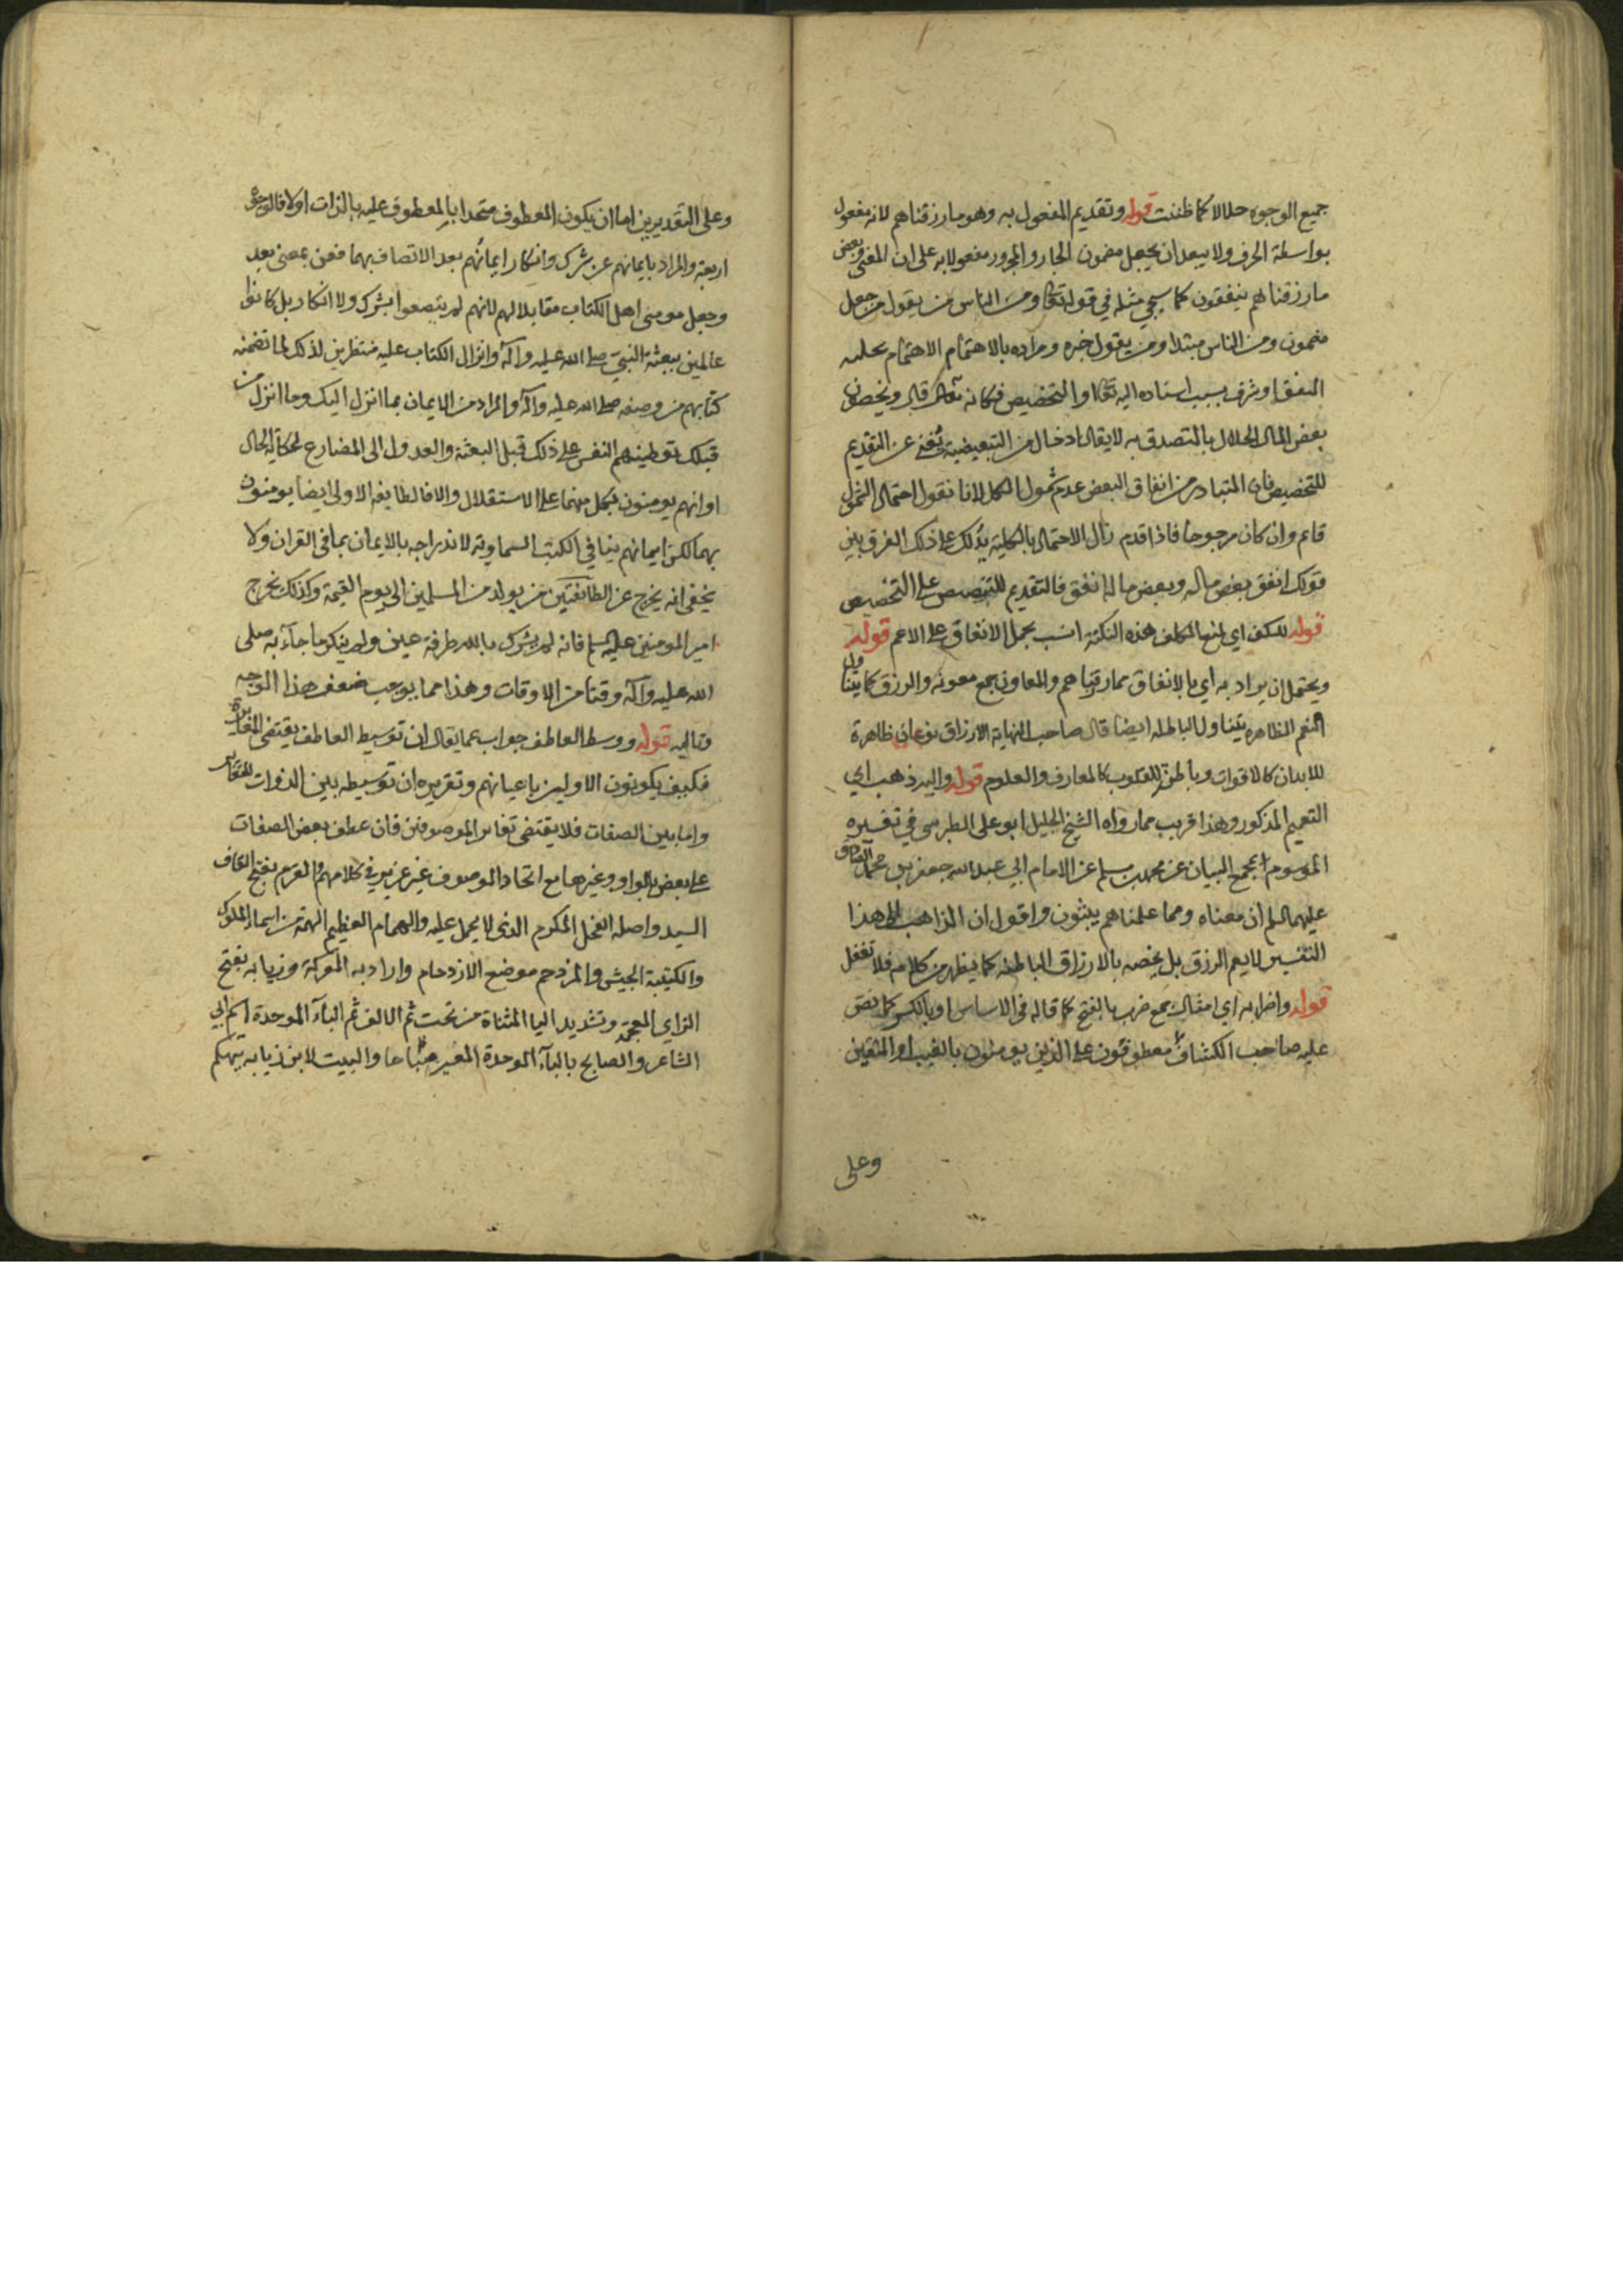 جميع الوجوه حلالا كما ظننت قوله وتقديم المفعول به وهو ما رزقناهم لانه مفعول
بواسطة الحرف ولا يبعد ان يجعل مضمون الجار والمجرور مفعولا به على ان المعنى وبعض
ما رزقناهم ينفقون كما سيجي مثله في قوله تعالى ومن الناس من يقول من جعل
مضمون ومن الناس مبتدا ومن يقول خبره ومراده بالاهتمام الاهتمام
المنفق او شرف بسبب اسناده اليه تعالى او التخصيص فكانه تعالى قال ويخصون
بعض المال الحلال بالتصدق به لا يقال ادخال من التبعيضية يغني عن التقديم
للتخصيص فان المتبادر من انفاق البعض عدم شمول الكل لانا نقول احتمال الشمول
قائم وان كان مرجوحا فاذا قدم زال الاحتمال بالكلية يدلك على ذلك الفرق بين
قولك انفق بعض ماله وبعض ماله انفق فالتقديم للتنصيص على التخصيص
قوله للكف اي لمنع المكلف هذه النكتة انسب بحمل الانفاق على الاعم قوله
ويحتمل ان يراد به اي بالانفاق مما رزقناهم والمعاون جمع معونة والرزق كما يتناول
النعم الظاهره يتناول الباطنه ايضا قال صاحب النهاية الارزاق نوعان ظاهرة
للابدان كالاقوات وباطنة للقلوب كالمعارف والعلوم قوله واليه ذهب اي
التعميم المذكور وهذا قريب مما رواه الشيخ الجليل ابو على الطبرسي في تفسيره
الموسوم بمجمع البيان عن محمد بن مسلم عن الامام ابي عبد الله جعفر بن محمد الصادق
عليهما السلم ان معناه ومما علمناهم يبثون واقول ان الذاهب الى هذا
التفسير لا يعم الرزق بل يخصه بالارزاق الباطنه كما يظهر من كلامه فلا تغفل
قوله واضرابه اي امثاله جمع ضرب بالفتح كما قاله في الاساس او بالكسر كما نص
عليه صاحب الكشاف معطوفون على الذين يومنون بالغيب او المتقين
وعلى
وعلى التقديرين اما ان يكون المعطوف متحدا بالمعطوف عليه بالذات او لا فالوجوه
اربعة والمراد بايمانهم عن شرك وانكار ايمانهم بعد الاتصاف بهما فعن بمعنى بعد
وجعل مومني اهل الكتاب مقابلا لهم لانهم لم يتصفوا بشرك ولا انكار بل كانوا
عالمين ببعثة النبي صلى الله عليه وآله وانزال الكتاب عليه منتظرين لذلك لما تضمنه
كتابهم من وصفه صلى الله عليه وآله والمراد من الايمان بما انزل اليك وما انزل من
قبلك توطينهم النفس على ذلك قبل البعثة والعدول الى المضارع لحكاية الحال
او انهم يومنون بكل منهما على الاستقلال والا فالطايفه الاولى ايضا يومنون
بهما لكن ايمانهم بباقي الكتب السماوية لاندراجه بالايمان بما في القران ولا
يخفى انه يخرج عن الطائفتين من يولد من المسلمين الى يوم القيمة وكذلك يخرج
امير المومنين عليه السلم فانه لم يشرك بالله طرفة عين ولم ينكر ما جآء به صلى
الله عليه وآله وقتا من الاوقات وهذا مما يوجب ضعف هذا الوجه
وتاليه قوله ووسط العاطف جواب عما يقال ان توسيط العاطف يقتضي المغايرة
فكيف يكونون الاولين باعيانهم وتقريره ان توسيطه بين الذوات للتغاير
واما بين الصفات فلا يقتضي تغاير الموصوفين فان عطف بعض الصفات
على بعض بالواو وغيرها مع اتحاد الموصوف غير عزيز في كلامهم والقرم بفتح القاف
السيد واصله الفحل المكرم الذي لا يحمل عليه والهمام العظيم الهمة من اسماء الملوك
والكتيبة الجيش والمزدحم موضع الازدحام واراد به المعركة وزيابه بفتح
الزاي المعجمة وتشديد اليا المثناة من تحت ثم الالف ثم البآء الموحدة اسم ابي
الشاعر والصابح بالبآء الموحدة المغير صباحا والبيت لابن زيابه يتهكم